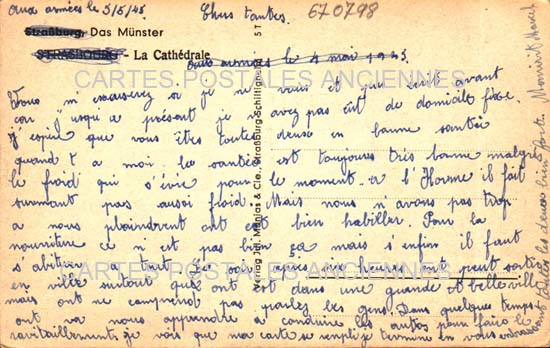 Aux armées le 5/5/45
Chers tantes.
670798
Straßburg, Das Münster
STRASBOURG - La Cathédrale
Aux armées le 4 mai 1945.
CARTES POSTALES ANCIENNES
Vous m'excuserez si je ne vous et pas écrit avant
car jusqu'a présent je n'avez pas êut de domicile fixe.
J'espère que vous êtes toutes deuse en banne santée
quand t a moi la santées est toujours très banne malgré
le froid qui s'évie pour le moment a l'Horme il fait
surement pas aussi froid. Mais nous n'avons pas trop
a nous plaindrent ont est bien habiller. Pour la
nouritûre ce n'est pas bien ça mais s'enfin il faut
s'abituer a tout. Le soir après heures ont peut sortir
en ville surtout que ont est dans une grande et belle ville
mais ont ne comprend pas parlez les gens. Dans quelques temps
ont va nous apprendre a conduire les autos pour faire le
ravitaillement, je vois que ma carte se remplie je termine en vous embrassant
toutes les deuse bien forts. Maurice
CARTES POSTALES ANCIENNES
Verlag Jul. Manias & Cie., Straßburg-Schiltigheim
57